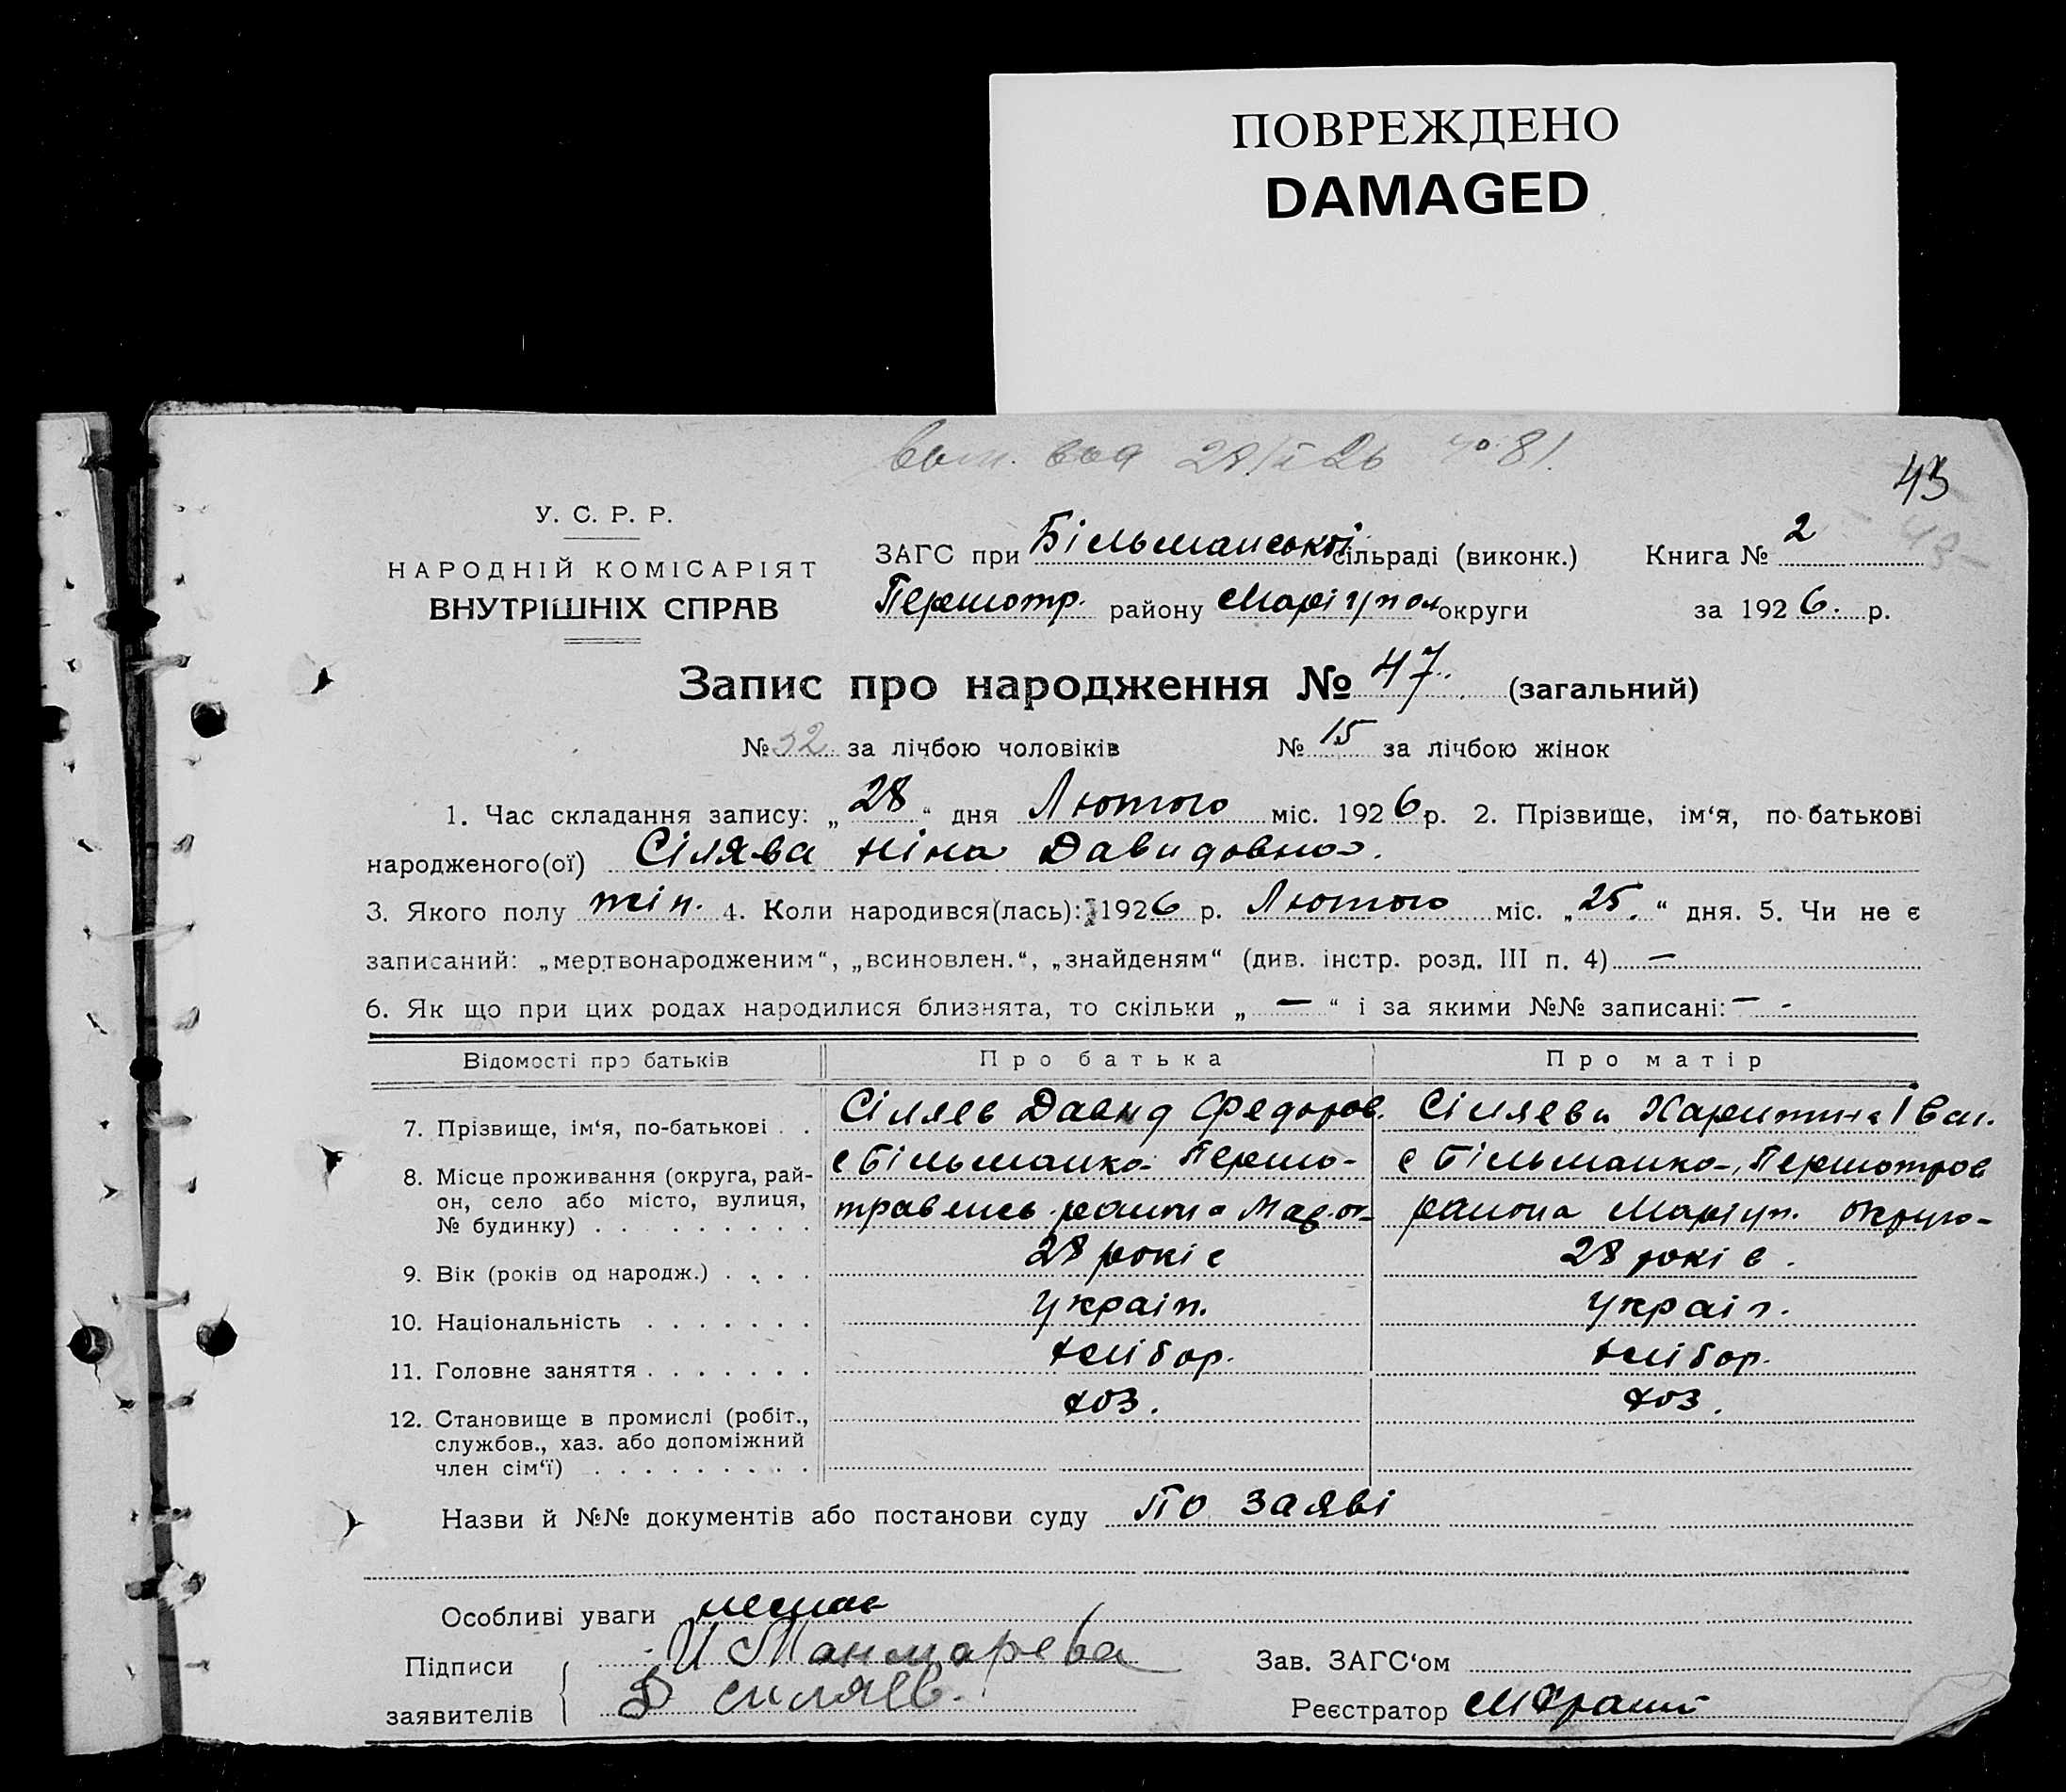 ПОВРЕЖДЕНО
DAMAGED
43
У. С. Р. Р.
НАРОДНІЙ КОМІСАРІЯТ
ВНУТРІШНІХ СПРАВ
ЗАГС при Більманській сільраді (виконк.) Книга № 2
Першотр. району Маріупол округи за 1926. р.
Запис про народження № 47. (загальний)
№ 32 за лічбою чоловіків № 15 за лічбою жінок
1. Час складання запису: „28“ дня Лютого міс. 1926 р. 2. Прізвище, ім‘я, по-батькові
народженого(ої) Сілява Ніна Давидовна.
3. Якого полу жін. 4. Коли народився(лась): 1926 р. Лютого міс. „25.“ дня. 5. Чи не є
записаний: „мертвонародженим“, „всиновлен.“, „знайденям“ (див. інстр. розд. III п. 4) —
6. Як що при цих родах народилися близнята, то скільки „—“ і за якими №№ записані: — -
Відомості про батьків Про батька Про матір
7. Прізвище, ім‘я, по-батькові . . Сіляев Давид Федоров. Сіляева Харитина Іван.
8. Місце проживання (округа, рай- с Більманка Першо- с Більманка, Першотров
он, село або місто, вулиця, района Маріуп. округа
№ будинку)
9. Вік (років од народж.) . . . . 28 років 28 років.
10. Національність україн. україн.
11. Головне заняття хлібор. хлібор.
12. Становище в промислі (робіт., хоз. хоз.
службов., хаз. або допоміжний
член сім‘ї)
Назви й №№ документів або постанови суду По заяві
Особливі уваги немає
Підписи Зав. ЗАГС‘ом
заявителів Д Силяев. Реєстратор